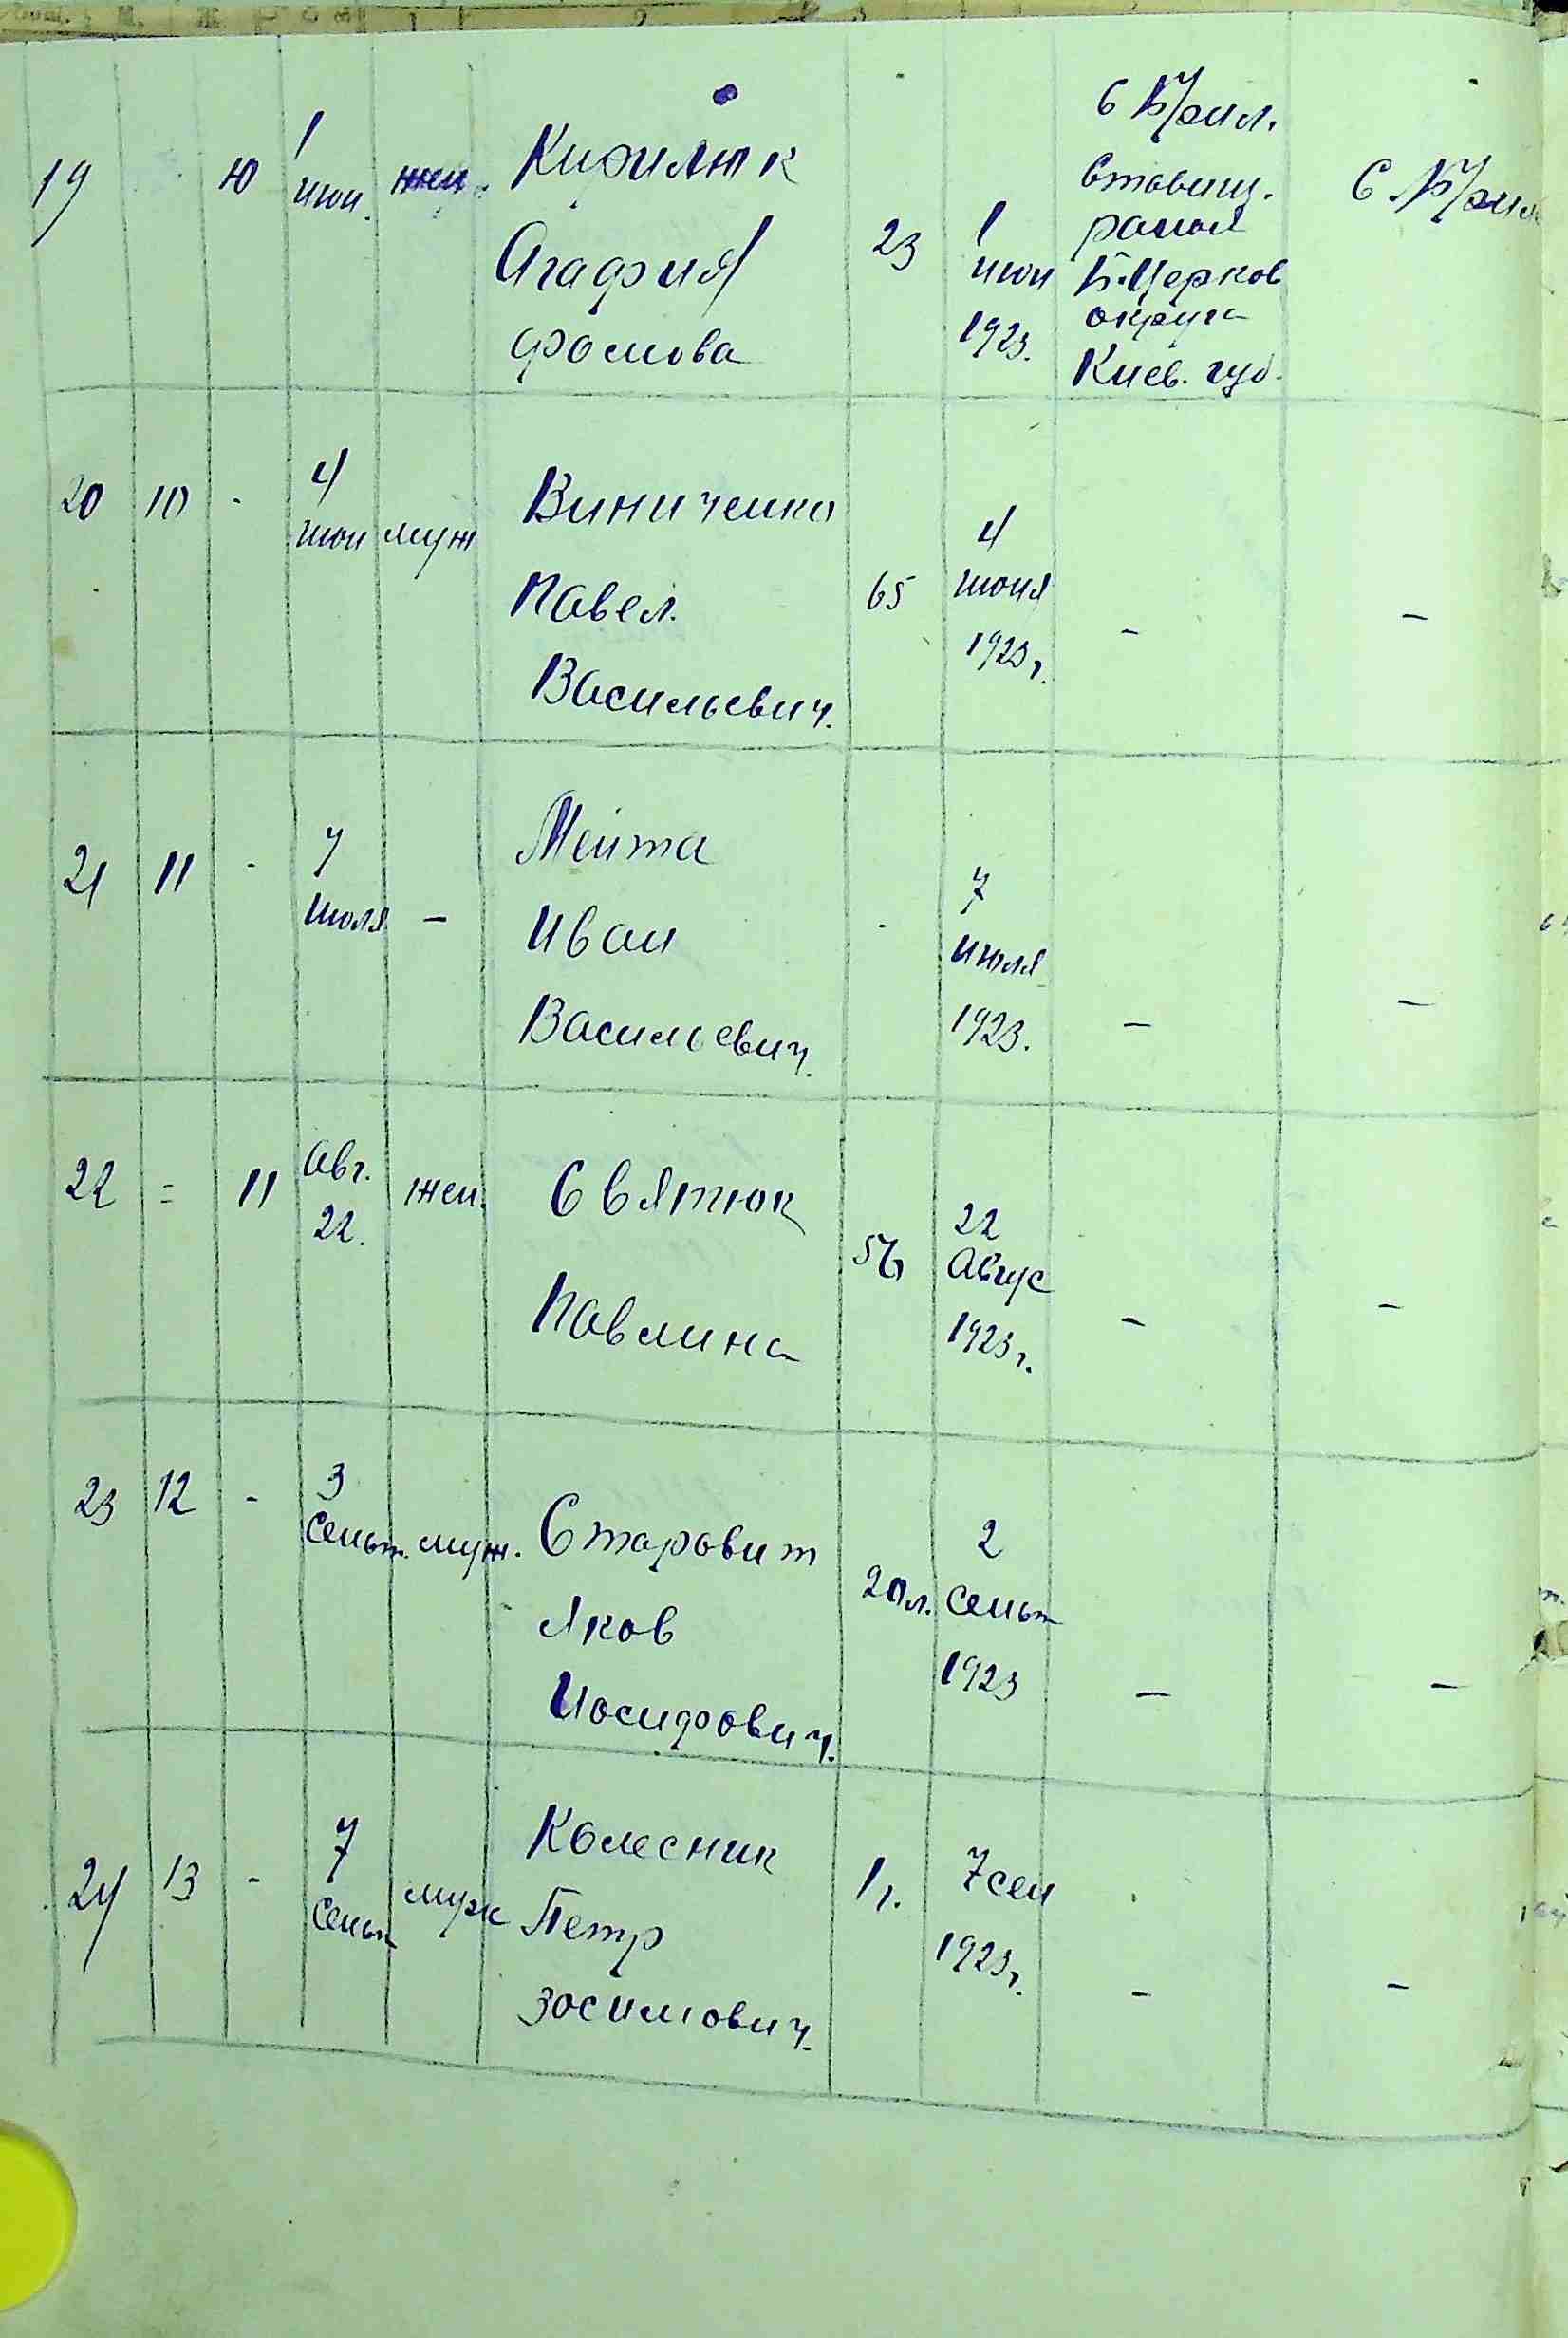 19 10 1 июн. жен. Кирилюк Агафия Фомова 23 1 июн 1923. с Б/рил. Ставищ. района Б.Церков округа Киев. губ. с. Б/рил
20 10 - 4 июн муж Виниченко Павел. Васильевич. 65 4 июня 1923 г. - -
21 11 - 7 июля - Мейта Иван Васильевич. - 7 июля 1923. - -
22 = 11 Авг. 22. жен. Святюк Павлина 56 22 Авгус 1923 г. - -
23 12 - 3 Сеньт. муж. Старовит Яков Иосифович. 20 л. 2 Сеньт 1923 - -
24 13 - 7 Сеньт муж Колесник Петр Зосимович. 1 г. 7 сен 1923 г. - -